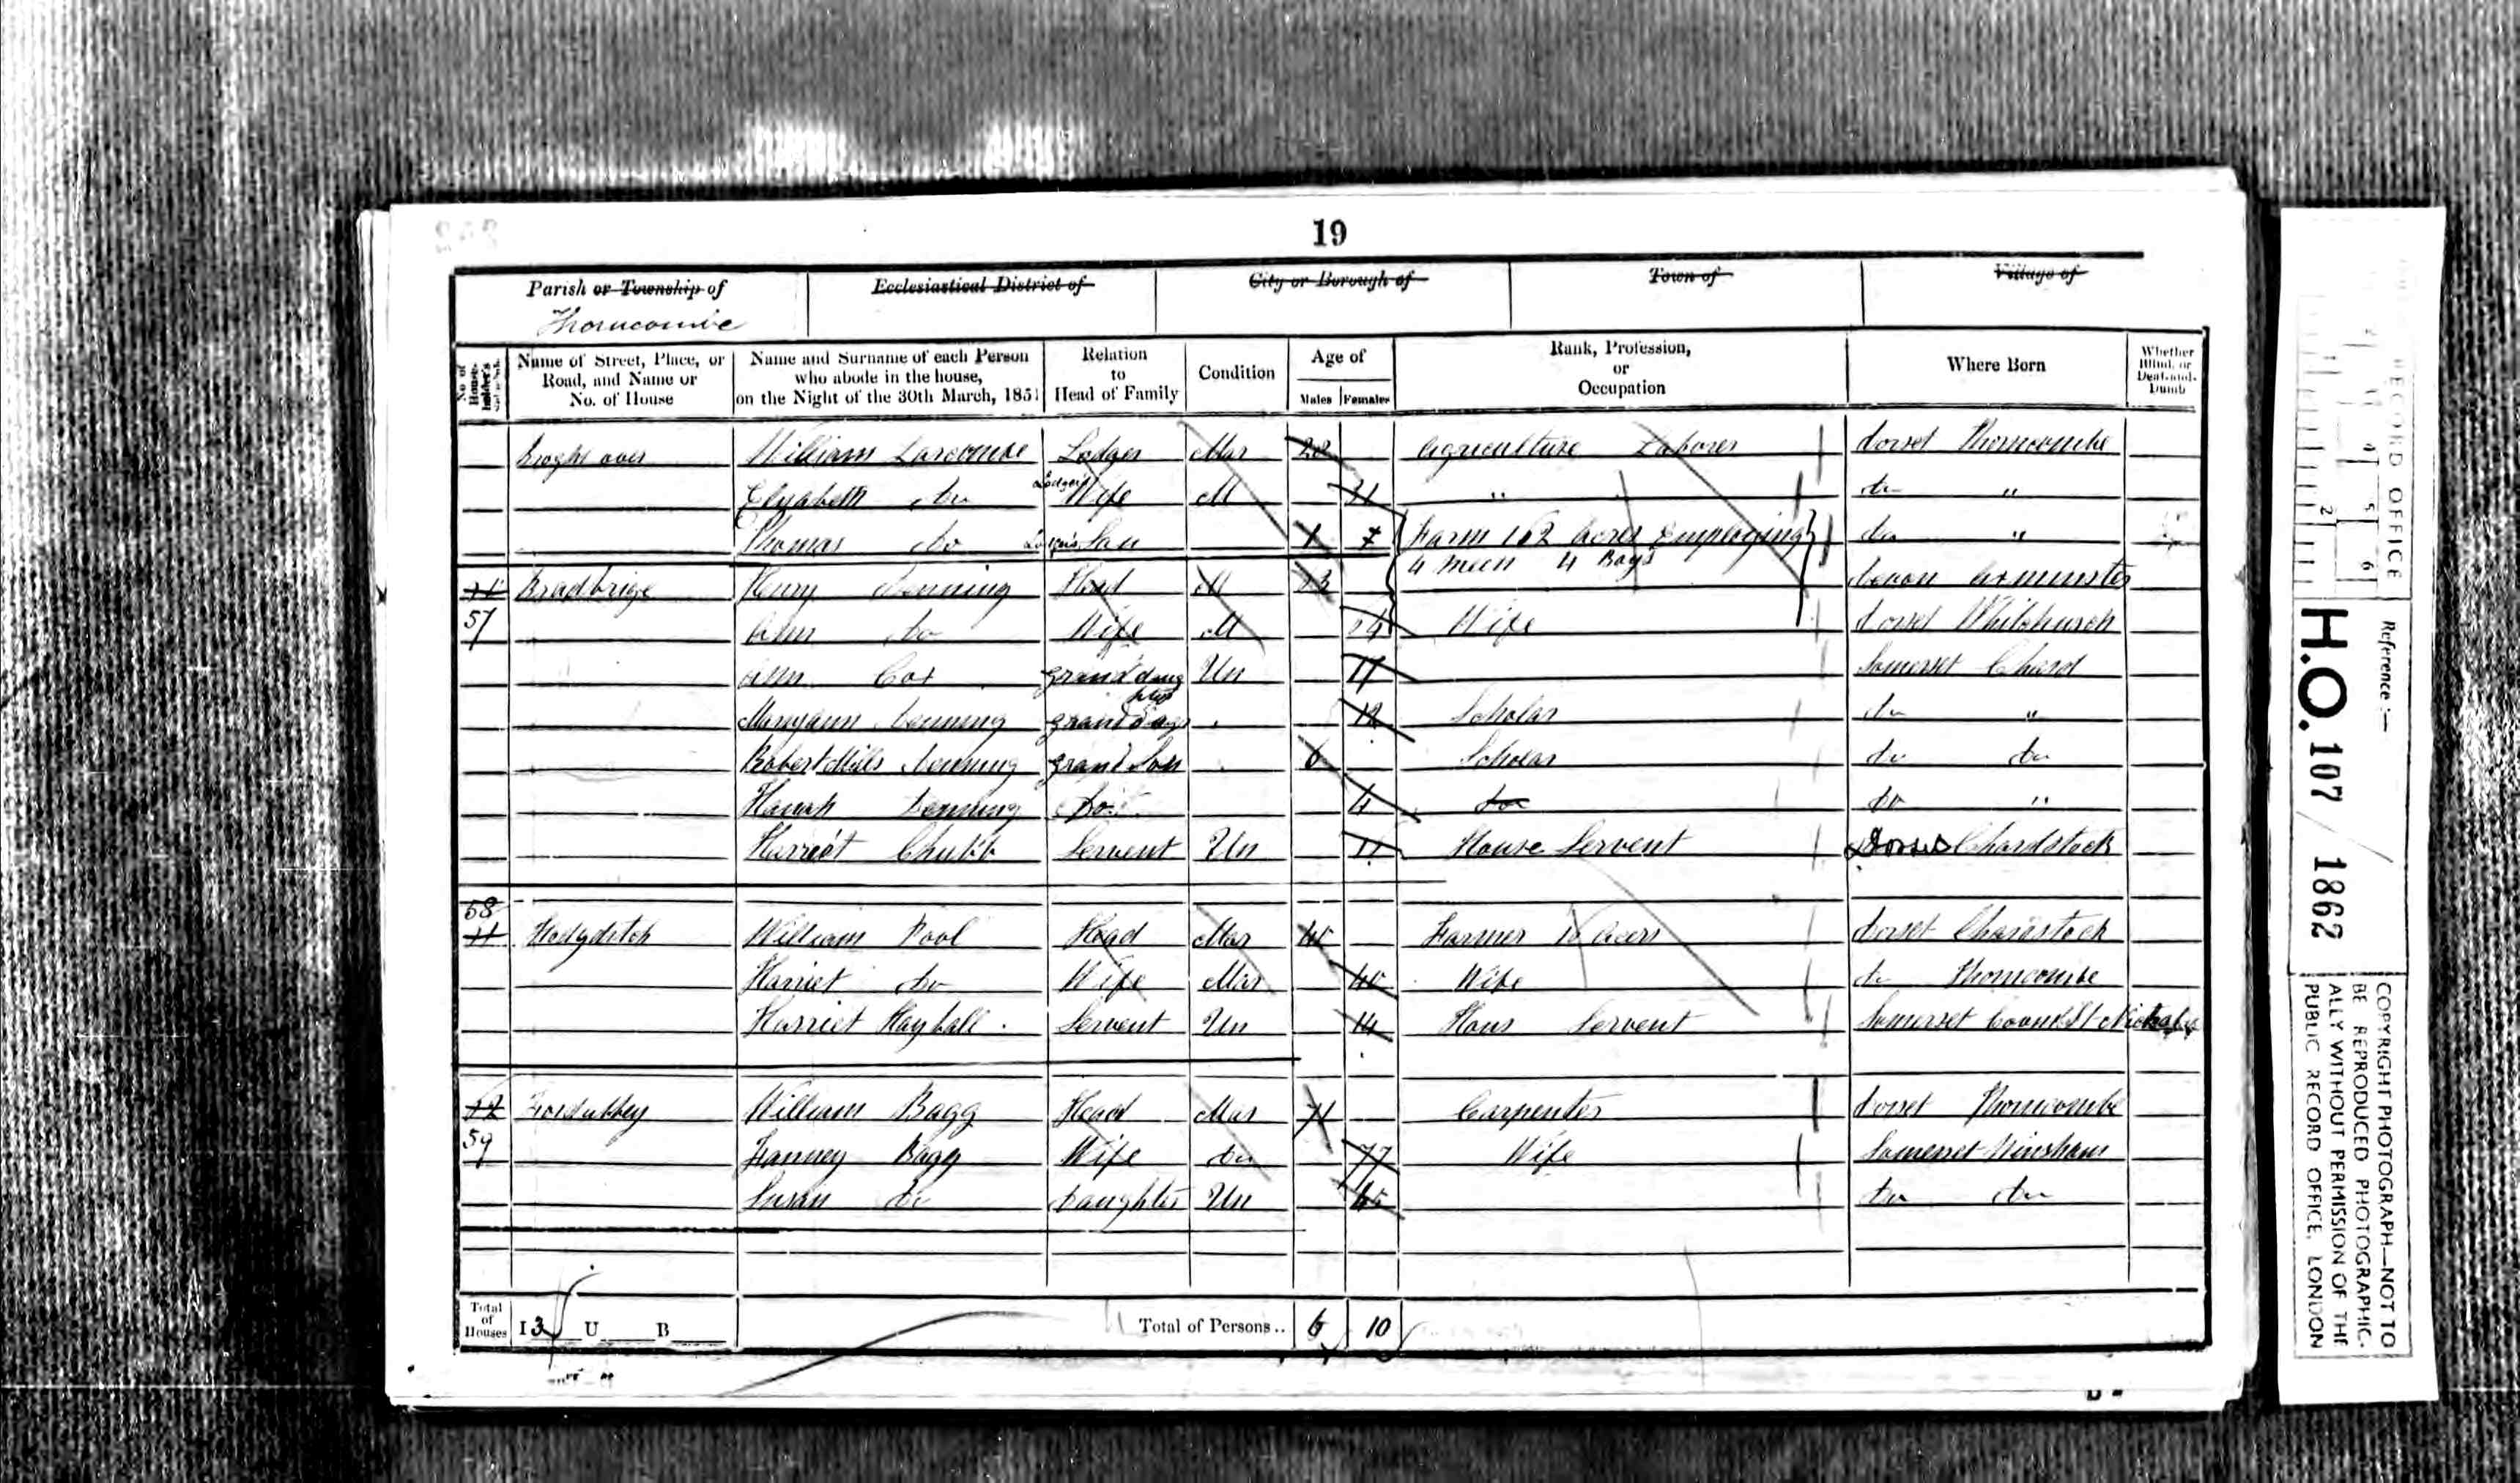 19
Parish or Township of
Ecclesiastical District of
City or Borough of
Town of
Village of
Thorncombe
No. of House-holder's Schedule
Name of Street, Place, or Road, and Name or No. of House
Name and Surname of each Person who abode in the house, on the Night of the 30th March, 1851
Relation to Head of Family
Condition
Age of
Males
Females
Rank, Profession, or Occupation
Where Born
Whether Blind, or Deaf-and-Dumb
William Larcombe Lodger Mar 28 Agriculture Laborer dorset Thorncombe
Elizabeth do Lodger's Wife M 31 " do "
Thomas do Lodger's Son 1 do "
Farm 162 Acres Employing
4 men 4 Boys
57 Bradbrige Henry Denning Head M 73 devon Axminster
Ann do Wife M Wife dorset Whitchurch
Ann Cox grand daughter Un 17 Somerset Chard
Maryann Denning 12 Scholar do "
Robert Mills Denning grand Son 6 Scholar do do
Hanah Denning Do 4 do do "
Harriet Chubb Servent Un 11 House Servent Dorset Chardstock
58 William Pool Head Mar Farmer dorset Chardstock
Harriet do Wife Mar 40 Wife do Thorncombe
Harriet Hayball Servent Un 14 Hous Servent Somerset St Nicholas
59 Fordabbey William Bagg Head Mar 71 Carpenter dorset Thorncombe
Fanney Bagg Wife do 77 Wife Somerset Winsham
Susan do Daughter Un 45 do do
Total of Houses
I 3 U B
Total of Persons.. 6 10
RECORD OFFICE
2 4 5 6
Reference :—
H.O. 107 / 1862
COPYRIGHT PHOTOGRAPH—NOT TO
BE REPRODUCED PHOTOGRAPHIC-
ALLY WITHOUT PERMISSION OF THE
PUBLIC RECORD OFFICE, LONDON